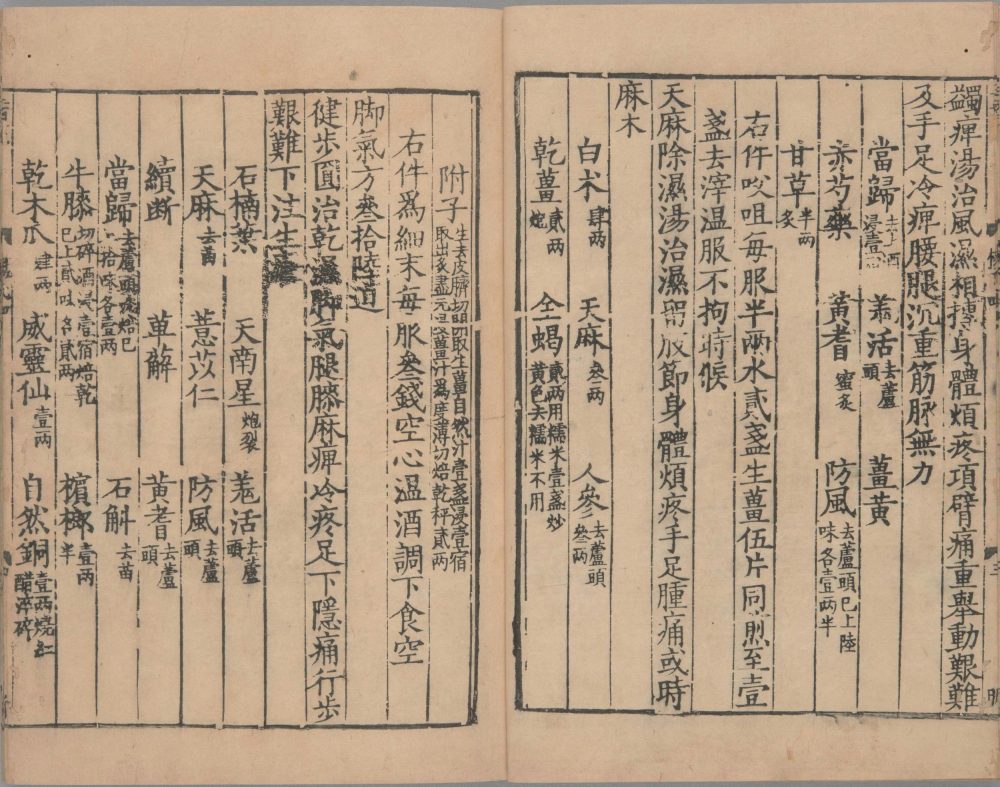 蠲痺湯治風濕相搏身體煩疼項臂痛重舉動艱難
及手足冷痺腰腿沉重筋脉無力
當歸去土酒浸壹宿 羗活去蘆頭 薑黃
赤芍藥 黃耆蜜炙 防風去蘆頭已上陸味各壹兩半
甘草半兩炙
右件㕮咀每服半兩水貳盞生薑伍片同煎至壹
盞去滓温服不拘時候
天麻除濕湯治濕留肢節身體煩疼手足腫痛或時
麻木
白术肆兩 天麻叁兩 人參去蘆頭叁兩
乾薑貳兩炮 全蝎貳兩用糯米壹盞炒黃色去糯米不用
附子生去皮臍切開取生薑自然汁壹盞浸壹宿取出炙盡元浸薑汁爲度薄切焙乾秤貳兩
右件爲細末每服叁錢空心温酒調下食空
脚氣方叁拾陸道
健步圓治乾濕脚氣腿膝麻痺冷疼足下隱痛行步
艱難下注生瘡
石楠葉 天南星炮裂 羗活去蘆頭
天麻去苗 薏苡仁 防風去蘆頭
續斷 萆薢 黃耆去蘆頭
當歸去蘆頭 焙已 拾味各壹兩 石斛去苗
牛膝切碎酒浸壹宿焙乾已上貳味各貳兩 檳榔壹兩半
乾木瓜肆兩 威靈仙壹兩 自然銅壹兩燒紅醋淬碎